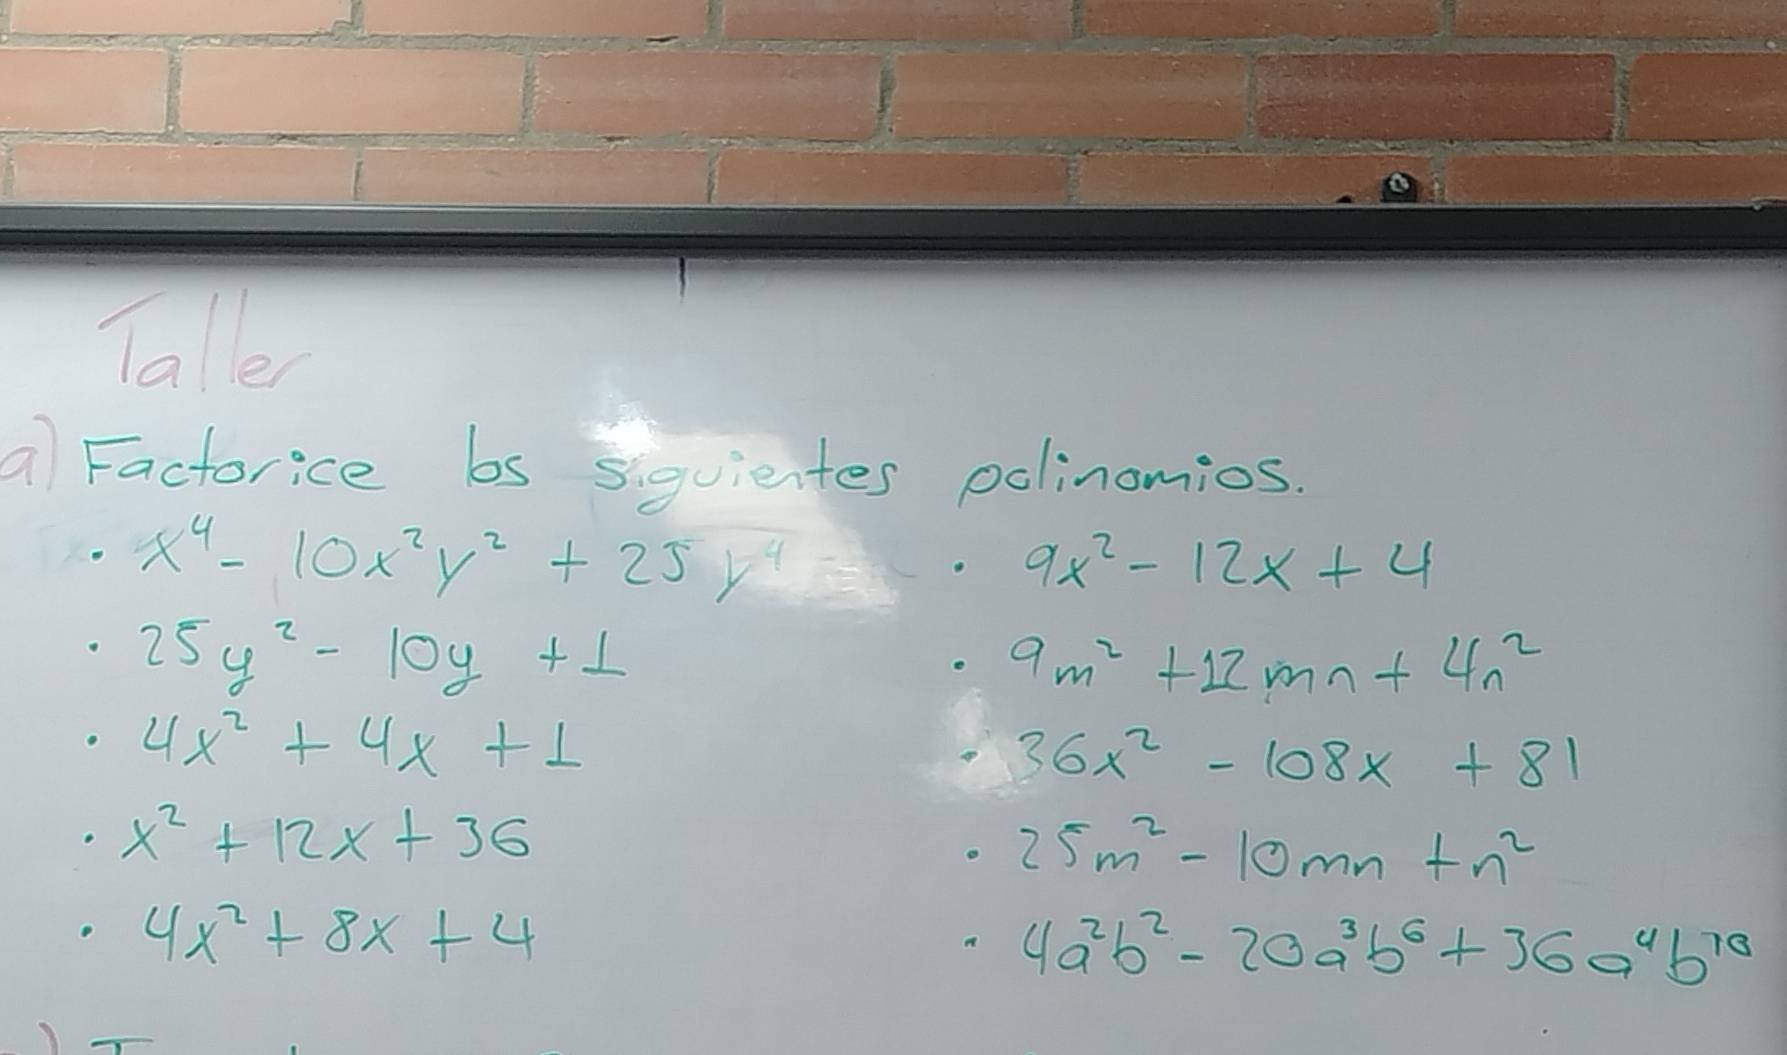 Taller
a) Factorice los siguientes polinomios.
• x⁴ - 10x²y² + 25y⁴
• 25y² - 10y + 1
• 4x² + 4x + 1
• x² + 12x + 36
• 4x² + 8x + 4
• 9x² - 12x + 4
• 9m² + 12mn + 4n²
• 36x² - 108x + 81
• 25m² - 10mn + n²
• 4a²b² - 20a³b⁶ + 36a⁴b¹⁰